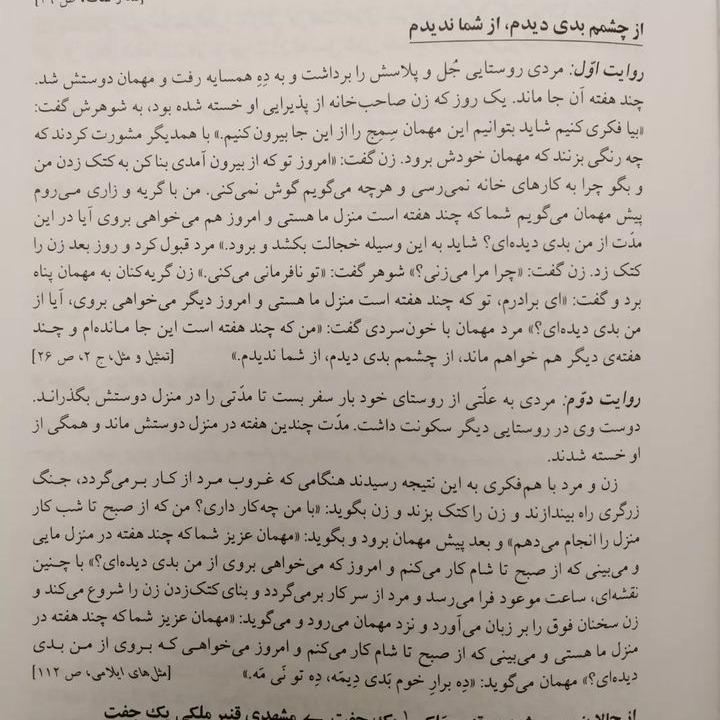 از چشمم بدی دیدم، از شما ندیدم
روایت اوّل: مردی روستایی جُل و پلاسش را برداشت و به دِهِ همسایه رفت و مهمان دوستش شد.
چند هفته آن جا ماند. یک روز که زن صاحب‌خانه از پذیرایی او خسته شده بود، به شوهرش گفت:
«بیا فکری کنیم شاید بتوانیم این مهمان سِمِج را از این جا بیرون کنیم.» با همدیگر مشورت کردند که
چه رنگی بزنند که مهمان خودش برود. زن گفت: «امروز تو که از بیرون آمدی بنا کن به کتک زدن من
و بگو چرا به کارهای خانه نمی‌رسی و هرچه می‌گویم گوش نمی‌کنی. من با گریه و زاری می‌روم
پیش مهمان می‌گویم شما که چند هفته است منزل ما هستی و امروز هم می‌خواهی بروی آیا در این
مدّت از من بدی دیده‌ای؟ شاید به این وسیله خجالت بکشد و برود.» مرد قبول کرد و روز بعد زن را
کتک زد. زن گفت: «چرا مرا می‌زنی؟» شوهر گفت: «تو نافرمانی می‌کنی.» زن گریه‌کنان به مهمان پناه
برد و گفت: «ای برادرم، تو که چند هفته است منزل ما هستی و امروز دیگر می‌خواهی بروی، آیا از
من بدی دیده‌ای؟» مرد مهمان با خون‌سردی گفت: «من که چند هفته است این جا مانده‌ام و چند
هفته‌ی دیگر هم خواهم ماند، از چشمم بدی دیدم، از شما ندیدم.» [تمثیل و مثل، ج ۲، ص ۲۶]
روایت دوّم: مردی به علّتی از روستای خود بار سفر بست تا مدّتی را در منزل دوستش بگذراند.
دوست وی در روستایی دیگر سکونت داشت. مدّت چندین هفته در منزل دوستش ماند و همگی از
او خسته شدند.
زن و مرد با هم‌فکری به این نتیجه رسیدند هنگامی که غروب مرد از کار برمی‌گردد، جنگ
زرگری راه بیندازند و زن را کتک بزند و زن بگوید: «با من چه‌کار داری؟ من که از صبح تا شب کار
منزل را انجام می‌دهم» و بعد پیش مهمان برود و بگوید: «مهمان عزیز شما که چند هفته در منزل مایی
و می‌بینی که از صبح تا شام کار می‌کنم و امروز که می‌خواهی بروی از من بدی دیده‌ای؟» با چنین
نقشه‌ای، ساعت موعود فرا می‌رسد و مرد از سر کار برمی‌گردد و بنای کتک‌زدن زن را شروع می‌کند و
زن سخنان فوق را بر زبان می‌آورد و نزد مهمان می‌رود و می‌گوید: «مهمان عزیز شما که چند هفته در
منزل ما هستی و می‌بینی که از صبح تا شام کار می‌کنم و امروز می‌خواهی که بروی از من بدی
دیده‌ای؟» مهمان می‌گوید: «دِه برارِ خوم بَدی دِیمَه، دِه تو نَی مَه.» [مثل‌های ایلامی، ص ۱۱۲]